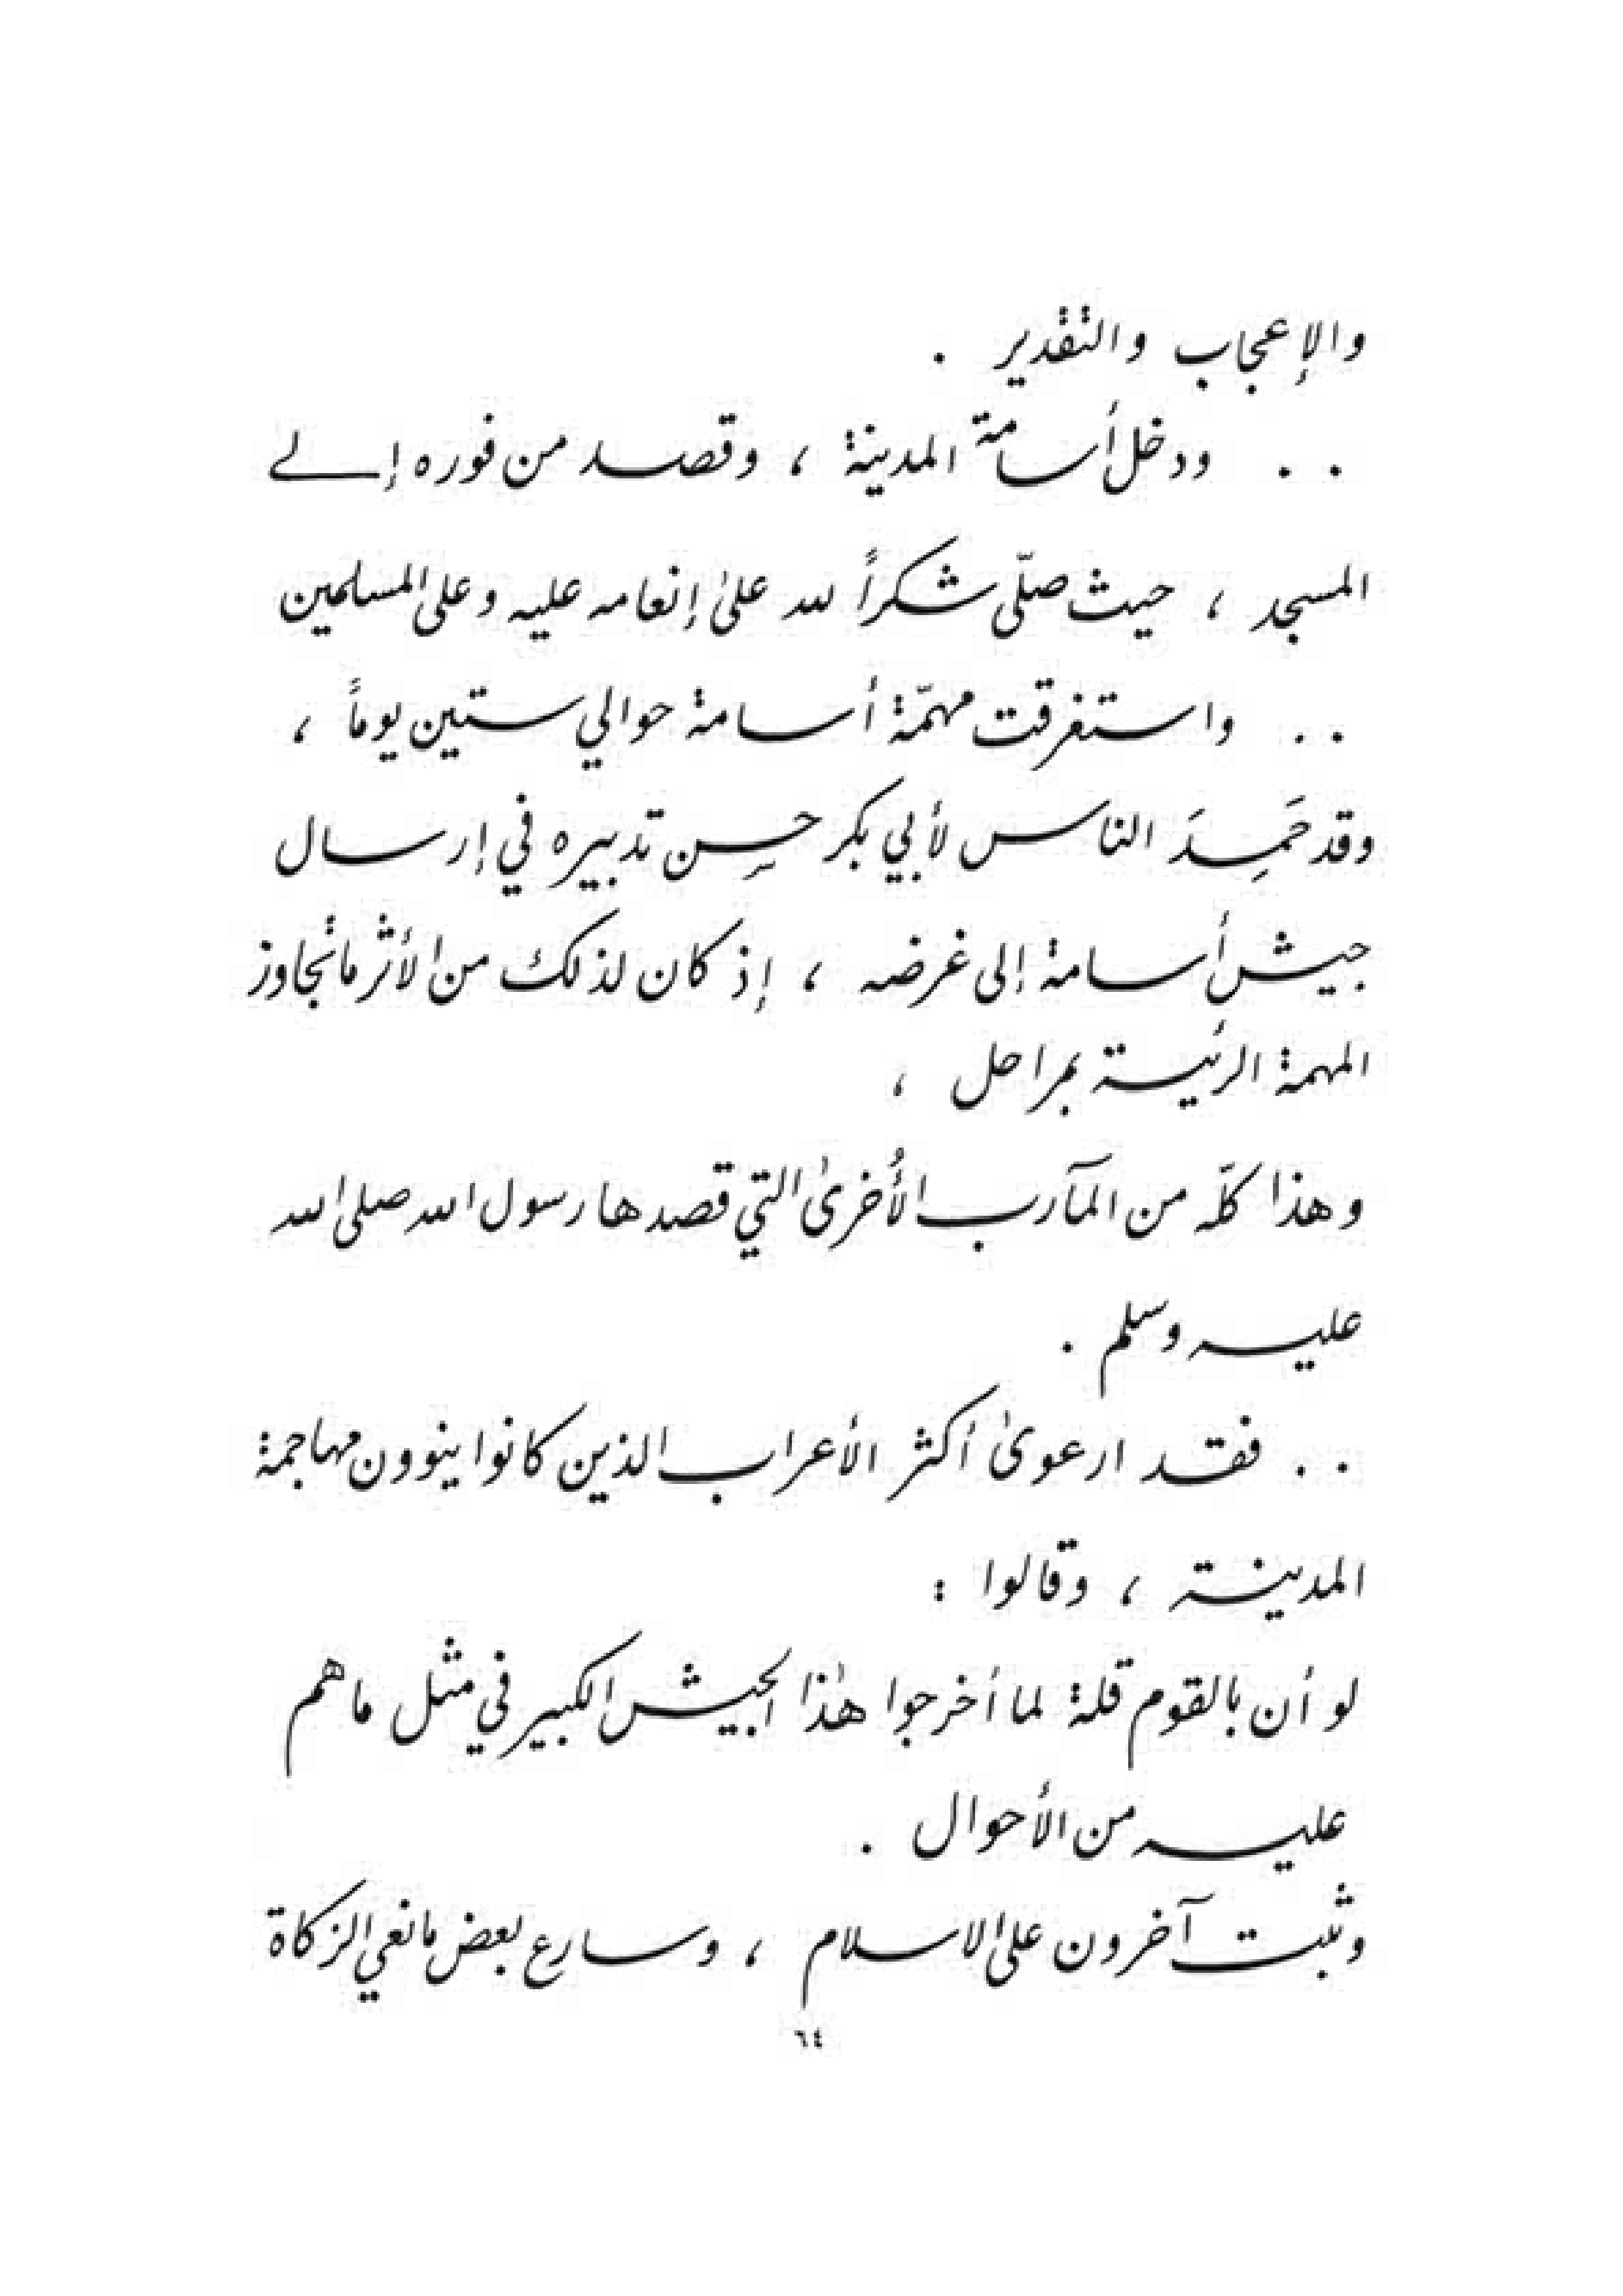 والإعجاب والتقدير .
. . ودخل أسامة المدينة ، وقصد من فوره إلى
المسجد ، حيث صلّى شكراً لله علىٰ إنعامه عليه وعلى المسلمين
. . واستغرقت مهمّة أسامة حوالي ستين يوماً ،
وقد حَمِدَ الناس لأبي بكر حسن تدبيره في إرسال
جيش أسامة إلى غرضه ، إذ كان لذلك من الأثر ما تجاوز
المهمة الرئيسة بمراحل ،
وهذا كلّه من المآرب الأُخرىٰ التي قصدها رسول الله صلى الله
عليه وسلم .
. . فقد ارعوىٰ أكثر الأعراب الذين كانوا ينوون مهاجمة
المدينة ، وقالوا :
لو أن بالقوم قلة لما أخرجوا هٰذا الجيش الكبير في مثل ما هم
عليه من الأحوال .
وثبت آخرون على الاسلام ، وسارع بعض مانعي الزكاة
٦٤